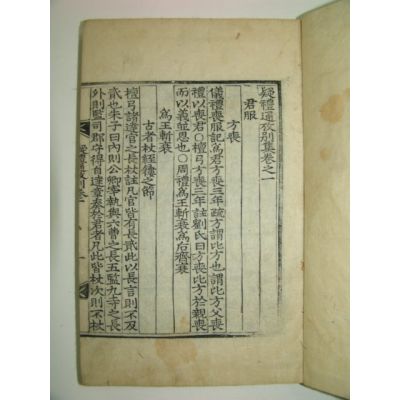 疑禮通攷別集卷之一
君服
方喪
儀禮喪服記爲君方喪三年疏方謂比方也謂比方父喪
禮以喪君○檀弓方喪三年註劉氏曰方喪比方於親喪
而以義並恩也○周禮爲王斬衰爲后齊衰
爲王斬衰
古者杖絰
之節
檀弓諸達官之長杖註凡官皆有長貳此以長言則不及
貳也朱子曰內則公卿宰執與六曹之長五監九寺之長
外則監司郡守得自達章奏於君者凡此皆杖次則不杖